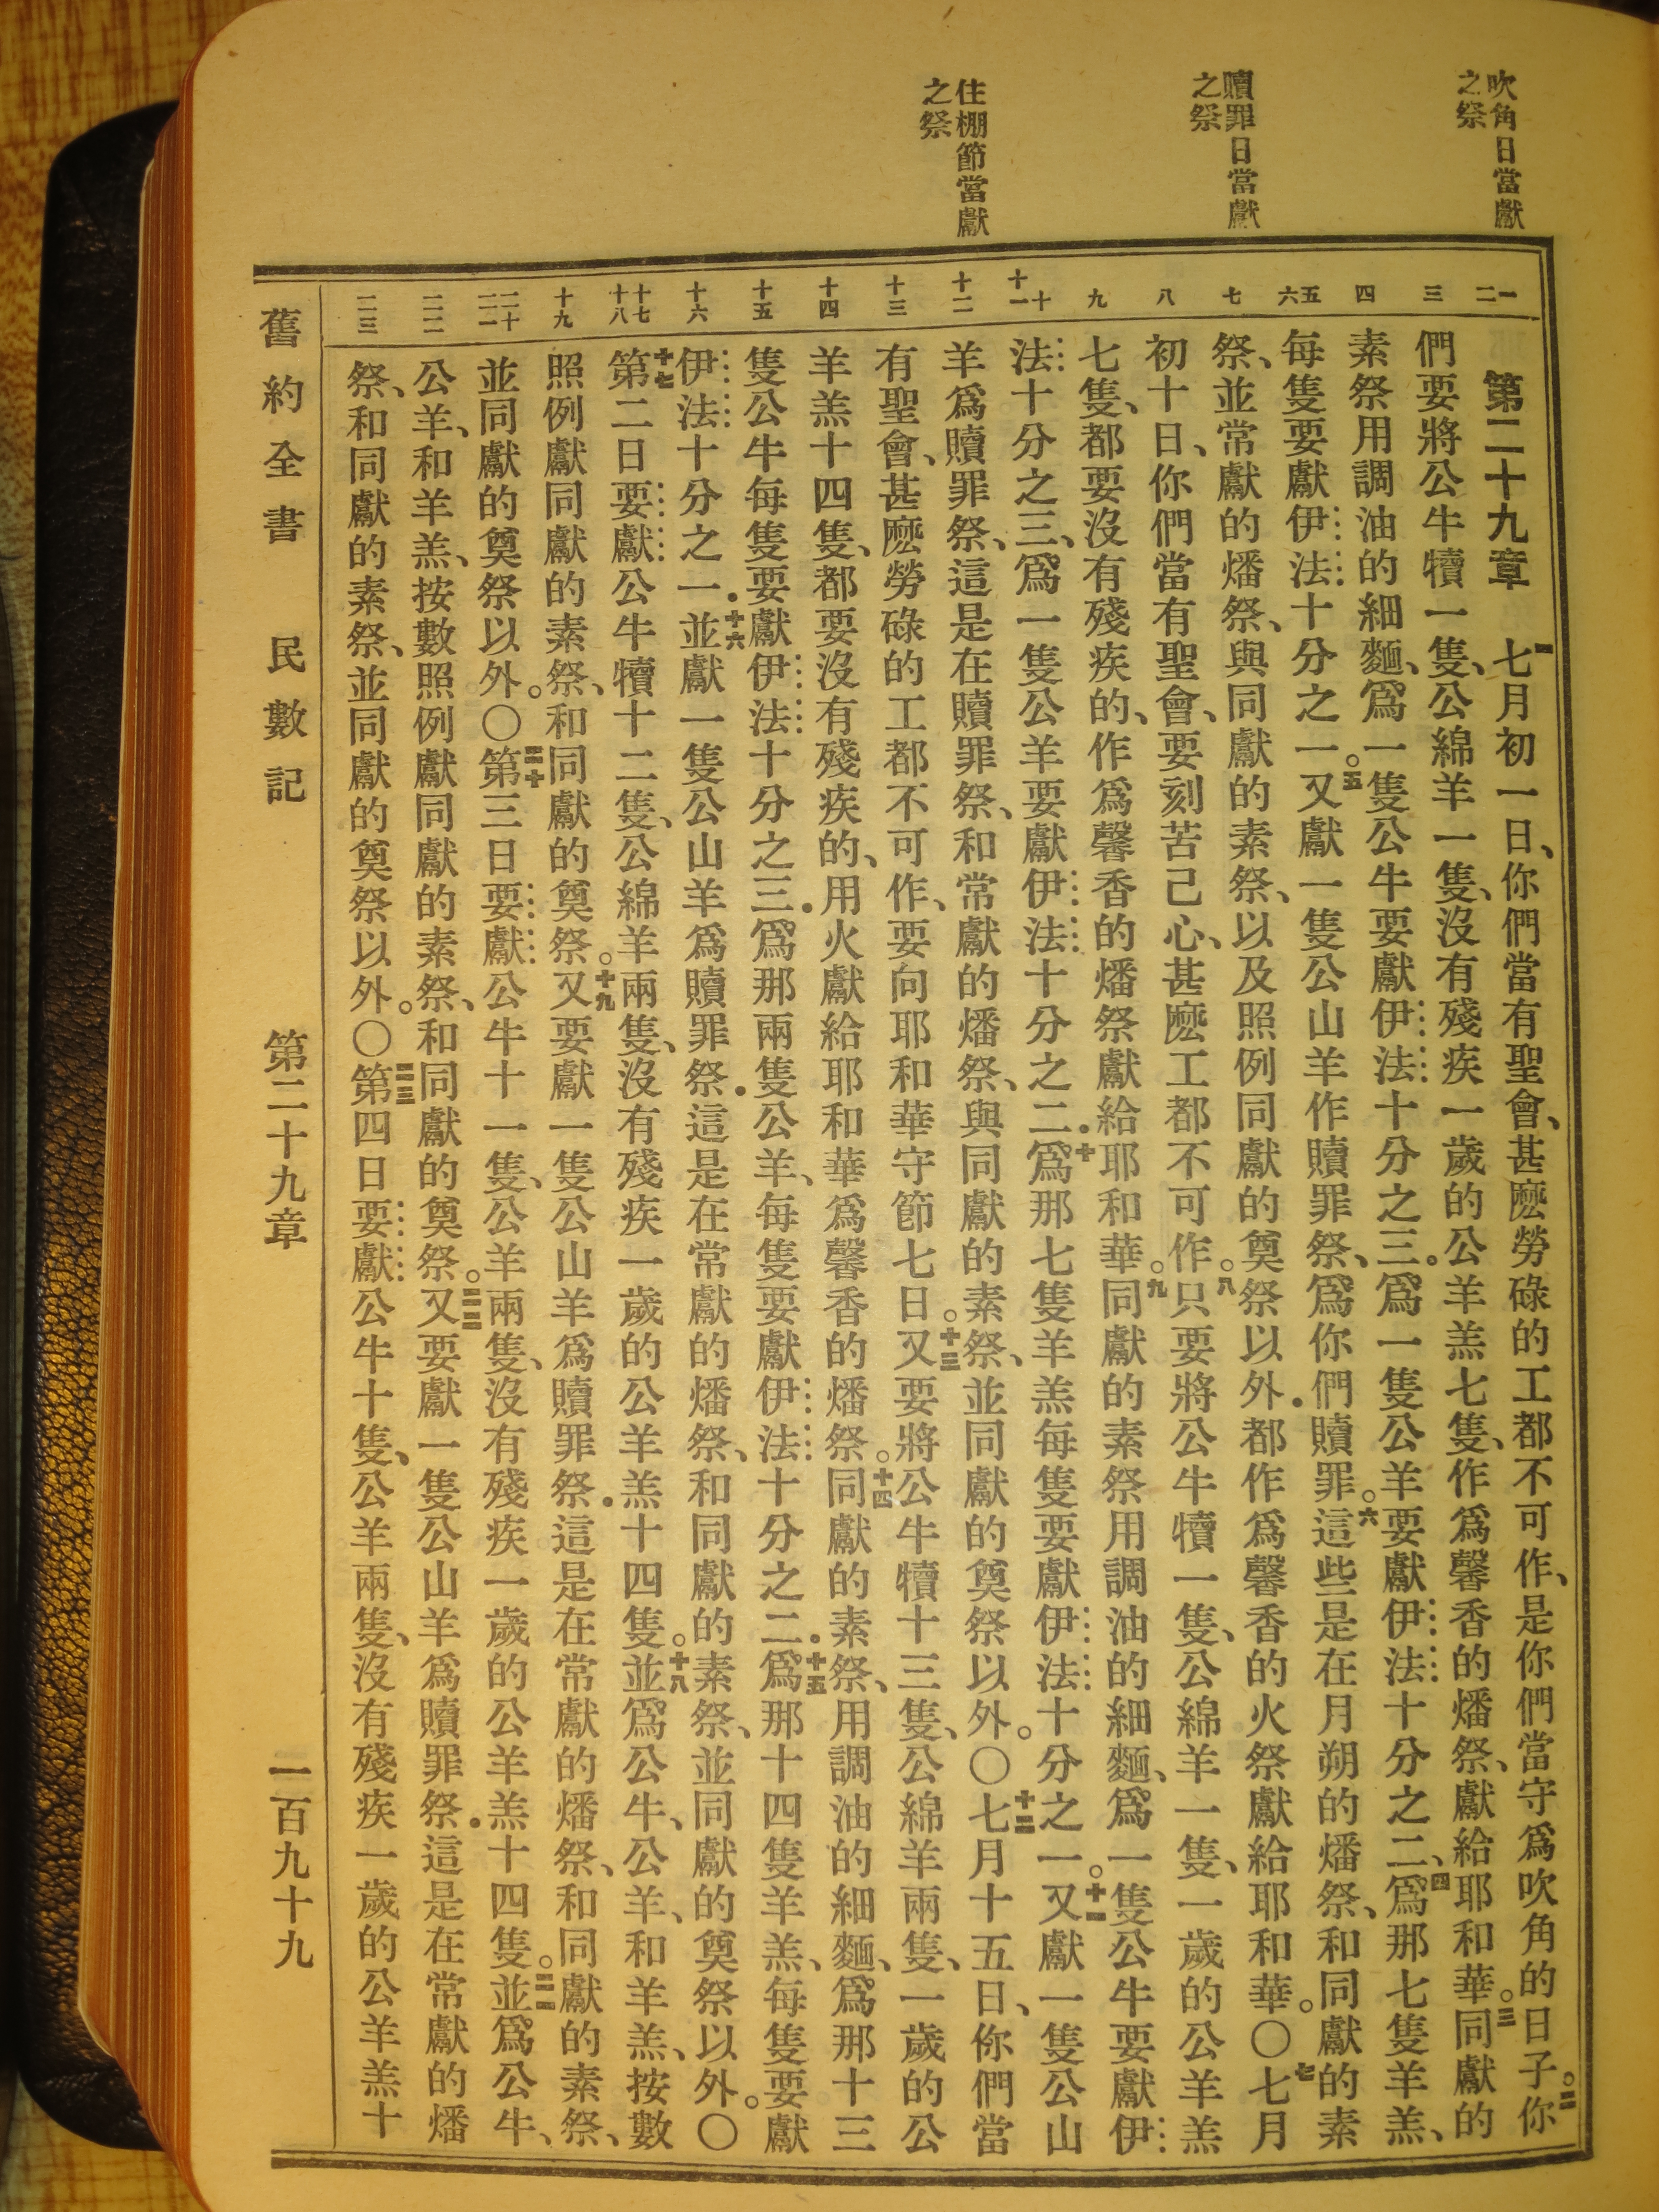 吹角日當獻
之祭
贖罪日當獻
之祭
住棚節當獻
之祭
一
二
三
四
五
六
七
八
九
十
十一
十二
十三
十四
十五
十六
十七
十八
十九
二十
二一
二二
二三
第二十九章 一七月初一日、你們當有聖會、甚麽勞碌的工都不可作、是你們當守爲吹角的日子。二你
們要將公牛犢一隻、公綿羊一隻、沒有殘疾一歲的公羊羔七隻、作爲馨香的燔祭、獻給耶和華。三同獻的
素祭用調油的細麵、爲一隻公牛要獻伊法十分之三。爲一隻公羊要獻伊法十分之二、四爲那七隻羊羔、
每隻要獻伊法十分之一。五又獻一隻公山羊作贖罪祭、爲你們贖罪。六這些是在月朔的燔祭、和同獻的素
祭、並常獻的燔祭、與同獻的素祭、以及照例同獻的奠祭以外．都作爲馨香的火祭獻給耶和華。〇七七月
初十日、你們當有聖會、要刻苦己心、甚麽工都不可作。八只要將公牛犢一隻、公綿羊一隻、一歲的公羊羔
七隻、都要沒有殘疾的、作爲馨香的燔祭獻給耶和華。九同獻的素祭用調油的細麵、爲一隻公牛要獻伊
法十分之三、爲一隻公羊要獻伊法十分之二．十爲那七隻羊羔每隻要獻伊法十分之一。十一又獻一隻公山
羊爲贖罪祭、這是在贖罪祭、和常獻的燔祭、與同獻的素祭、並同獻的奠祭以外。〇十二七月十五日、你們當
有聖會、甚麽勞碌的工都不可作、要向耶和華守節七日。十三又要將公牛犢十三隻、公綿羊兩隻、一歲的公
羊羔十四隻、都要沒有殘疾的、用火獻給耶和華爲馨香的燔祭。十四同獻的素祭、用調油的細麵、爲那十三
隻公牛每隻要獻伊法十分之三．爲那兩隻公羊、每隻要獻伊法十分之二．十五爲那十四隻羊羔、每隻要獻
伊法十分之一．十六並獻一隻公山羊爲贖罪祭．這是在常獻的燔祭、和同獻的素祭、並同獻的奠祭以外。〇
十七第二日要獻公牛犢十二隻、公綿羊兩隻、沒有殘疾一歲的公羊羔十四隻。十八並爲公牛、公羊、和羊羔、按數
照例獻同獻的素祭、和同獻的奠祭。十九又要獻一隻公山羊爲贖罪祭．這是在常獻的燔祭、和同獻的素祭、
並同獻的奠祭以外。〇二十第三日要獻公牛十一隻、公羊兩隻、沒有殘疾一歲的公羊羔十四隻。二一並爲公牛、
公羊、和羊羔、按數照例獻同獻的素祭、和同獻的奠祭。二二又要獻一隻公山羊爲贖罪祭．這是在常獻的燔
祭、和同獻的素祭、並同獻的奠祭以外。〇二三第四日要獻公牛十隻、公羊兩隻、沒有殘疾一歲的公羊羔十
舊約全書 民數記 第二十九章 一百九十九